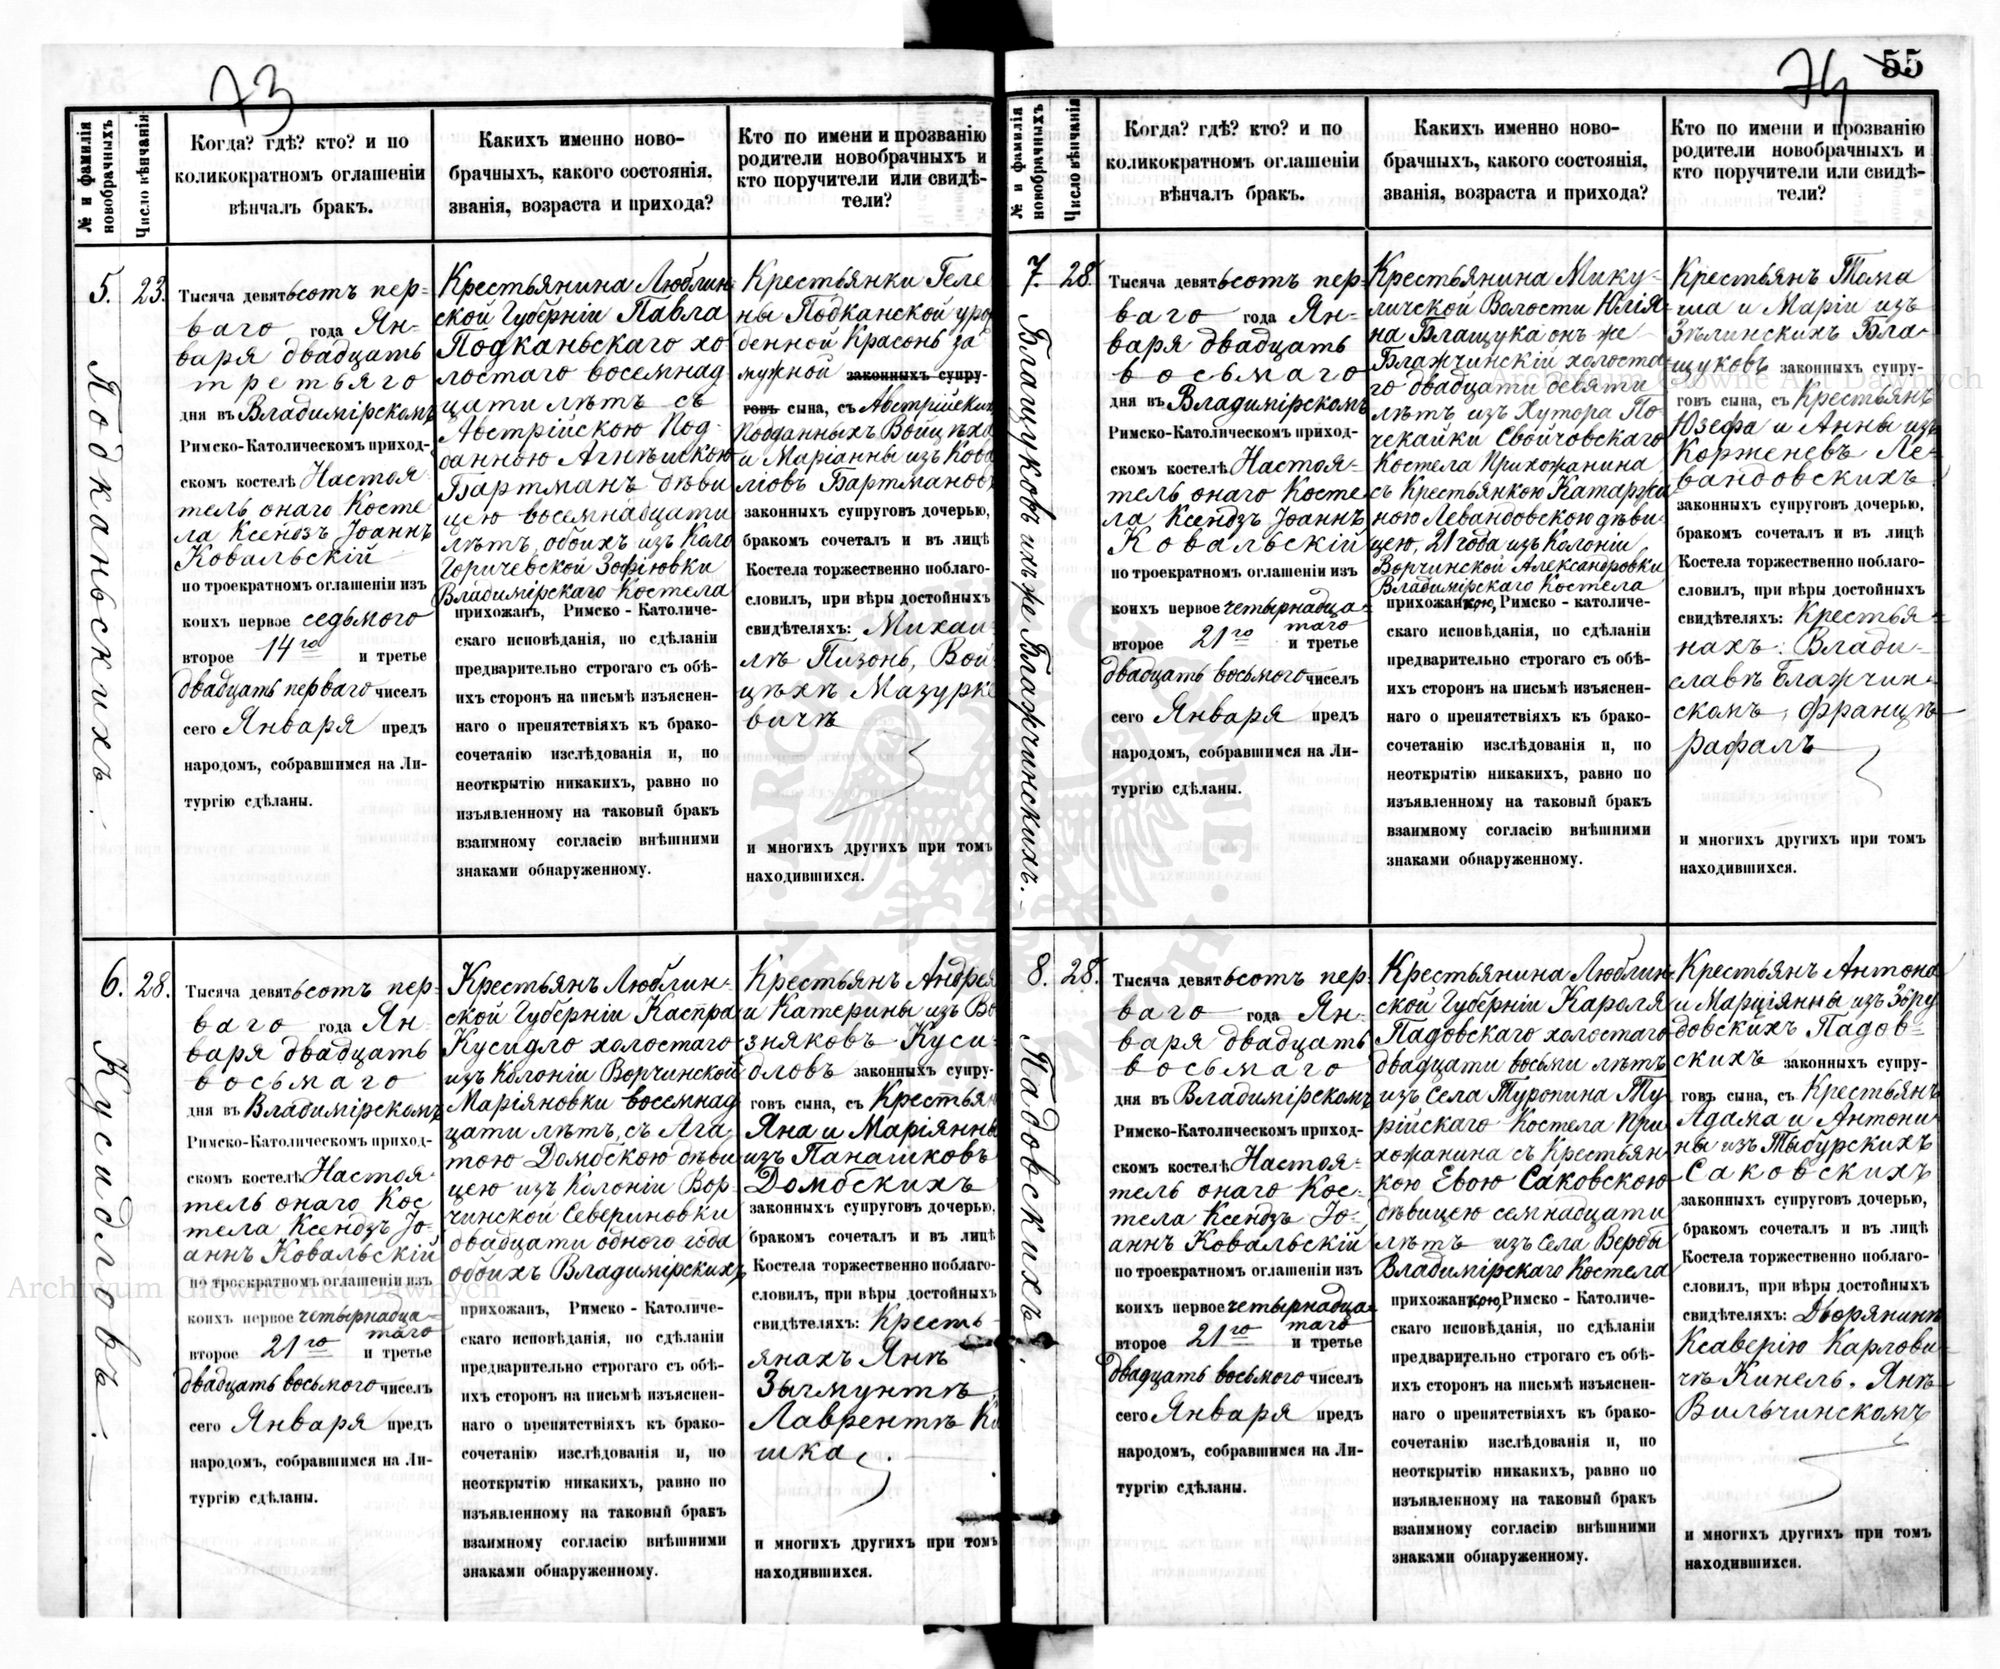 73
№ и фамилія
новобрачныхъ
Число вѣнчанія
Когда? гдѣ? кто? и по
коликократномъ оглашеніи
вѣнчалъ бракъ.
Какихъ именно ново-
брачныхъ, какого состоянія,
званія, возраста и прихода?
Кто по имени и прозванію
родители новобрачныхъ и
кто поручители или свидѣ-
тели?
5.
Подканьскихъ.
23.
Тысяча девятьсотъ пер-
ваго года Ян-
варя двадцать
третьяго
дня въ Владимірскомъ
Римско-Католическомъ приход-
скомъ костелѣ Настоя-
тель онаго Косте
ла Ксендзъ Іоаннъ
Ковальскій
по троекратномъ оглашеніи изъ
коихъ первое седьмого
второе 14го и третье
двадцать перваго чиселъ
сего Января предъ
народомъ, собравшимся на Ли-
тургію сдѣланы.
Крестьянина Люблин-
ской Губерніи Павла
Подканьскаго хо
лостаго восемнад
цати лѣтъ съ
Австрійскою Под-
данною Агнѣшкою
Бартманъ дѣви
цею восемнадцати
лѣтъ, обоихъ изъ Коло
Горичевской Зофіювки
Владимірскаго Костела
прихожанъ, Римско - Католиче-
скаго исповѣданія, по сдѣланіи
предварительно строгаго съ обѣ-
ихъ сторонъ на письмѣ изъяснен-
наго о препятствіяхъ къ брако-
сочетанію изслѣдованія и, по
неоткрытію никакихъ, равно по
изъявленному на таковый бракъ
взаимному согласію внѣшними
знаками обнаруженному.
Крестьянки Геле
ны Подканской уро
денной Красонь за
мужной законныхъ супру-
говъ сына, съ Австрійскихъ
Подданныхъ Войцѣха
и Маріанны изъ Кова
ліовъ Бартмановъ
законныхъ супруговъ дочерью,
бракомъ сочеталъ и въ лицѣ
Костела торжественно поблаго-
словилъ, при вѣры достойныхъ
свидѣтеляхъ: Михаи-
лѣ Пизонь, Вой-
цѣхѣ Мазурке
вичѣ
и многихъ другихъ при томъ
находившихся.
6.
Кусидловъ.
28.
Тысяча девятьсотъ пер-
ваго года Ян-
варя двадцать
восьмаго
дня въ Владимірскомъ
Римско-Католическомъ приход-
скомъ костелѣ Настоя-
тель онаго Кос-
тела Ксендзъ Іо-
аннъ Ковальскій
по троекратномъ оглашеніи изъ
коихъ первое четырнадца-
таго
второе 21го и третье
двадцать восьмого чиселъ
сего Января предъ
народомъ, собравшимся на Ли-
тургію сдѣланы.
Крестьянъ Люблин-
ской Губерніи Каспра
Кусидло холостаго
изъ Колоніи Ворчинской
Маріяновки восемнад
цати лѣтъ, съ Ага
тою Домбскою дѣви
цею изъ Колоніи Вор-
чинской Севериновки
двадцати одного года
обоихъ Владимірскихъ
прихожанъ, Римско - Католиче-
скаго исповѣданія, по сдѣланіи
предварительно строгаго съ обѣ-
ихъ сторонъ на письмѣ изъяснен-
наго о препятствіяхъ къ брако-
сочетанію изслѣдованія и, по
неоткрытію никакихъ, равно по
изъявленному на таковый бракъ
взаимному согласію внѣшними
знаками обнаруженному.
Крестьянъ Андрея
и Катерины изъ Во
зняковъ Куси-
дловъ законныхъ супру-
говъ сына, съ Крестьян
Яна и Маріянны
изъ Панашковъ
Домбскихъ
законныхъ супруговъ дочерью,
бракомъ сочеталъ и въ лицѣ
Костела торжественно поблаго-
словилъ, при вѣры достойныхъ
свидѣтеляхъ: Кресть-
янахъ Янѣ
Зыгмунтѣ,
Лаврентѣ Ки
шка
и многихъ другихъ при томъ
находившихся.
74
55
№ и фамилія
новобрачныхъ
Число вѣнчанія
Когда? гдѣ? кто? и по
коликократномъ оглашеніи
вѣнчалъ бракъ.
Какихъ именно ново-
брачныхъ, какого состоянія,
званія, возраста и прихода?
Кто по имени и прозванію
родители новобрачныхъ и
кто поручители или свидѣ-
тели?
7.
Блащуковъ инъже Блажчинскихъ.
28.
Тысяча девятьсотъ пер-
ваго года Ян-
варя двадцать
восьмаго
дня въ Владимірскомъ
Римско-Католическомъ приход-
скомъ костелѣ Настоя-
тель онаго Косте
ла Ксендзъ Іоаннъ
Ковальскій
по троекратномъ оглашеніи изъ
коихъ первое четырнадца-
таго
второе 21го и третье
двадцать восьмого чиселъ
сего Января предъ
народомъ, собравшимся на Ли-
тургію сдѣланы.
Крестьянина Мику-
личской Волости Юлія-
на Блащука онъ же
Блажчинскій холоста-
го двадцати девяти
лѣтъ изъ Хутора По-
чекайки Свойчовскаго
Костела Прихожанина
съ Крестьянкою Катаржи
ною Левандовскою дѣви-
цею, 21 года изъ Колоніи
Ворчинской Александровки
Владимірскаго Костела
прихожанкою, Римско - католиче-
скаго исповѣданія, по сдѣланіи
предварительно строгаго съ обѣ-
ихъ сторонъ на письмѣ изъяснен-
наго о препятствіяхъ къ брако-
сочетанію изслѣдованія и, по
неоткрытію никакихъ, равно по
изъявленному на таковый бракъ
взаимному согласію внѣшними
знаками обнаруженному.
Крестьянъ Тома
ша и Маріи изъ
Зѣлинскихъ Бла-
щуковъ законныхъ супру-
говъ сына, съ Крестьянъ
Юзефа и Анны изъ
Корженевъ Ле-
вандовскихъ
законныхъ супруговъ дочерью,
бракомъ сочеталъ и въ лицѣ
Костела торжественно поблаго-
словилъ, при вѣры достойныхъ
свидѣтеляхъ: Крестья-
нахъ: Влади-
славѣ Блажчин-
скомъ, Францѣ
Рафалъ
и многихъ другихъ при томъ
находившихся.
8.
Падовскихъ.
28.
Тысяча девятьсотъ пер-
ваго года Ян-
варя двадцать
восьмаго
дня въ Владимірскомъ
Римско-Католическомъ приход-
скомъ костелѣ Настоя-
тель онаго Кос-
тела Ксендзъ Іо-
аннъ Ковальскій
по троекратномъ оглашеніи изъ
коихъ первое четырнадца-
таго
второе 21го и третье
двадцать восьмого чиселъ
сего Января предъ
народомъ, собравшимся на Ли-
тургію сдѣланы.
Крестьянина Люблин-
ской Губерніи Кароля
Падовскаго холостаго
двадцати восьми лѣтъ
изъ села Туропина Ту-
рійскаго Костела При
хожанина съ Крестьян
кою Евою Саковскою
дѣвицею семнадцати
лѣтъ изъ села Вербы
Владимірскаго Костела
прихожанкою, Римско - Католиче-
скаго исповѣданія, по сдѣланіи
предварительно строгаго съ обѣ-
ихъ сторонъ на письмѣ изъяснен-
наго о препятствіяхъ къ брако-
сочетанію изслѣдованія и, по
неоткрытію никакихъ, равно по
изъявленному на таковый бракъ
взаимному согласію внѣшними
знаками обнаруженному.
Крестьянъ Антона
и Марціянны изъ Збру
довскихъ Падов-
скихъ законныхъ супру-
говъ сына, съ Крестьянъ
Адама и Антони-
ны изъ Тыбурскихъ
Саковскихъ
законныхъ супруговъ дочерью,
бракомъ сочеталъ и въ лицѣ
Костела торжественно поблаго-
словилъ, при вѣры достойныхъ
свидѣтеляхъ: Дворянинѣ
Ксаверію Карлови-
чѣ Кинель, Янѣ
Вильчинскомъ
и многихъ другихъ при томъ
находившихся.
Archiwum Główne Akt Dawnych
Archiwum Główne Akt Dawnych
ARCHIWUM GŁÓWNE AKT DAWNYCH